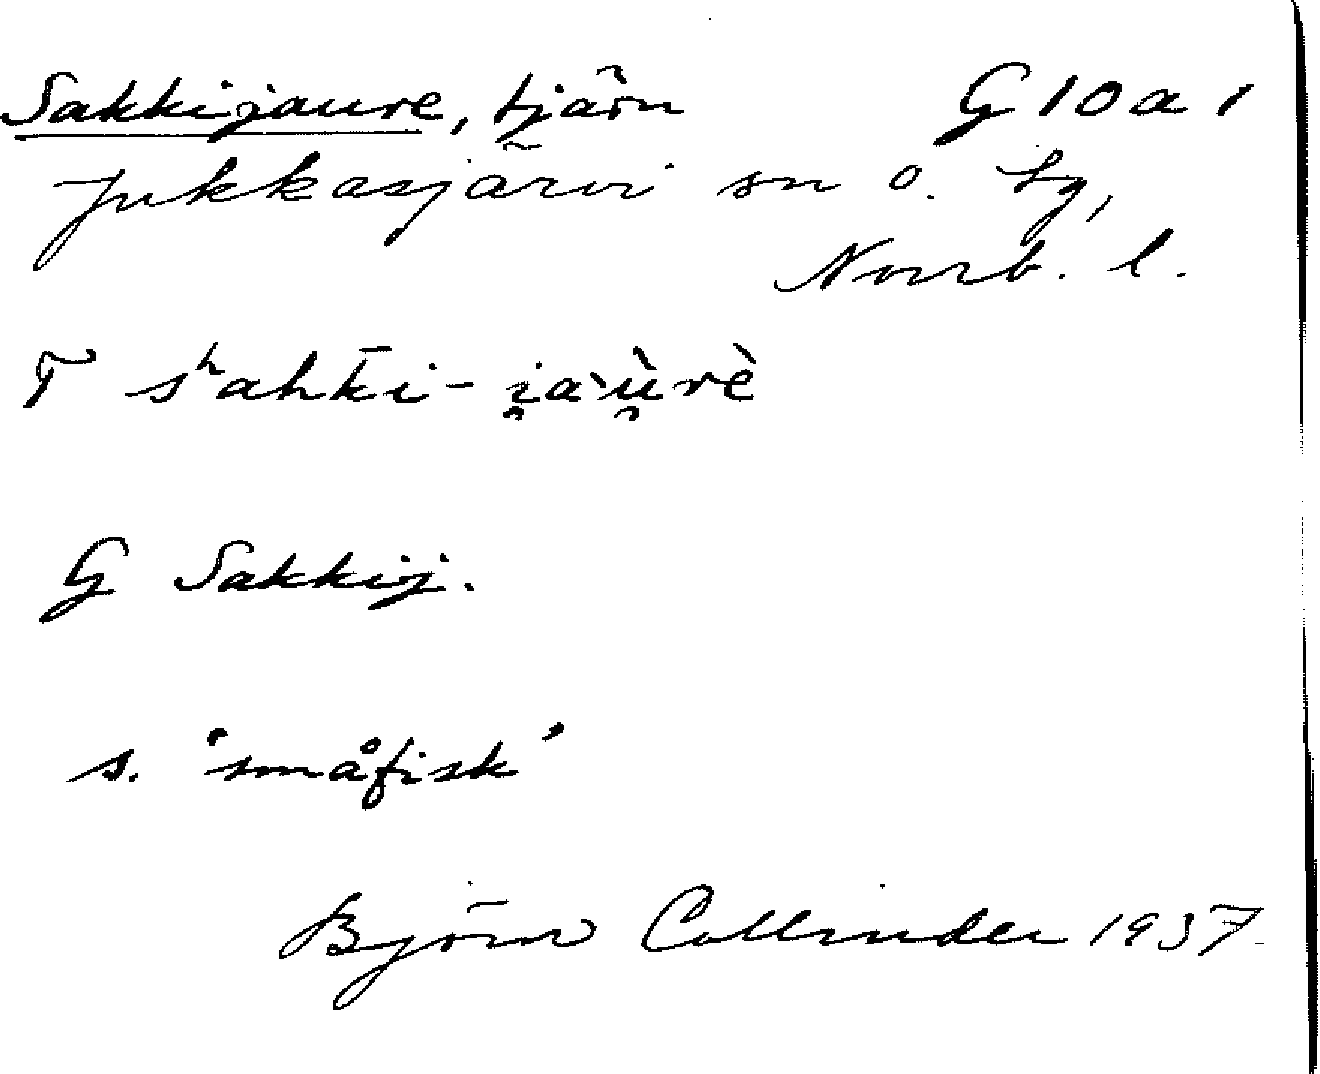 Sakkijaure, tjärn G 10 a 1
Jukkasjärvi sn o. tg,
Norrb. l.
T sʰahk̄i-i̯a`ù̯rè
G Sakkij.
s. 'småfisk'
Björn Collinder 1937